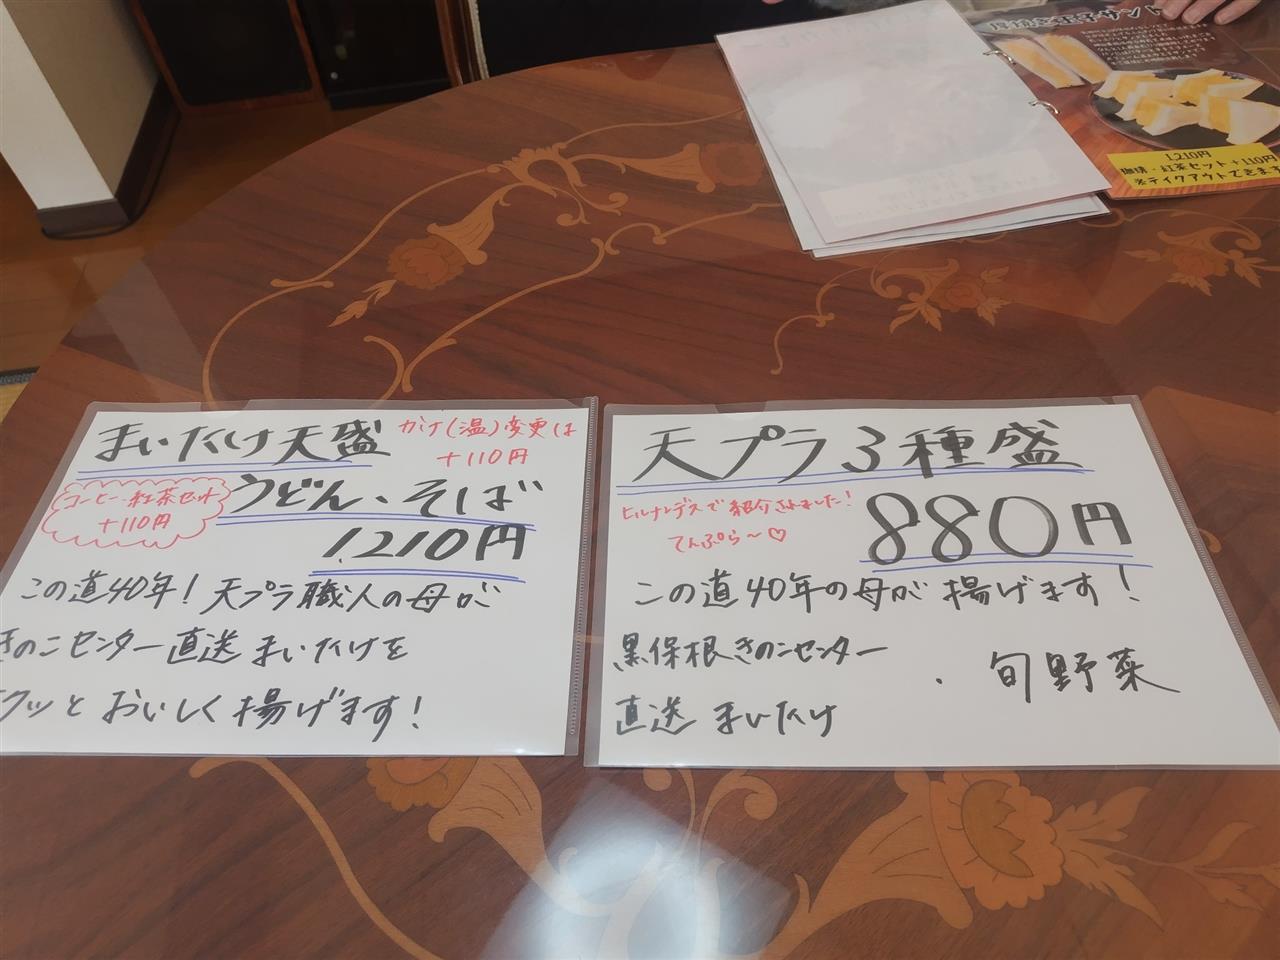 厚焼き玉子サンド
1,210円
珈琲・紅茶セット+110円
※テイクアウトできます
まいたけ天盛
かけ(温)変更は
+110円
コーヒー・紅茶セット
+110円
うどん、そば
1,210円
この道40年！天プラ職人の母が
きのこセンター直送まいたけを
クッとおいしく揚げます！
天プラ3種盛
ヒルナンデスで紹介されました！
てんぷら〜♡
880円
この道40年の母が揚げます！
黒保根きのこセンター
直送まいたけ
・旬野菜